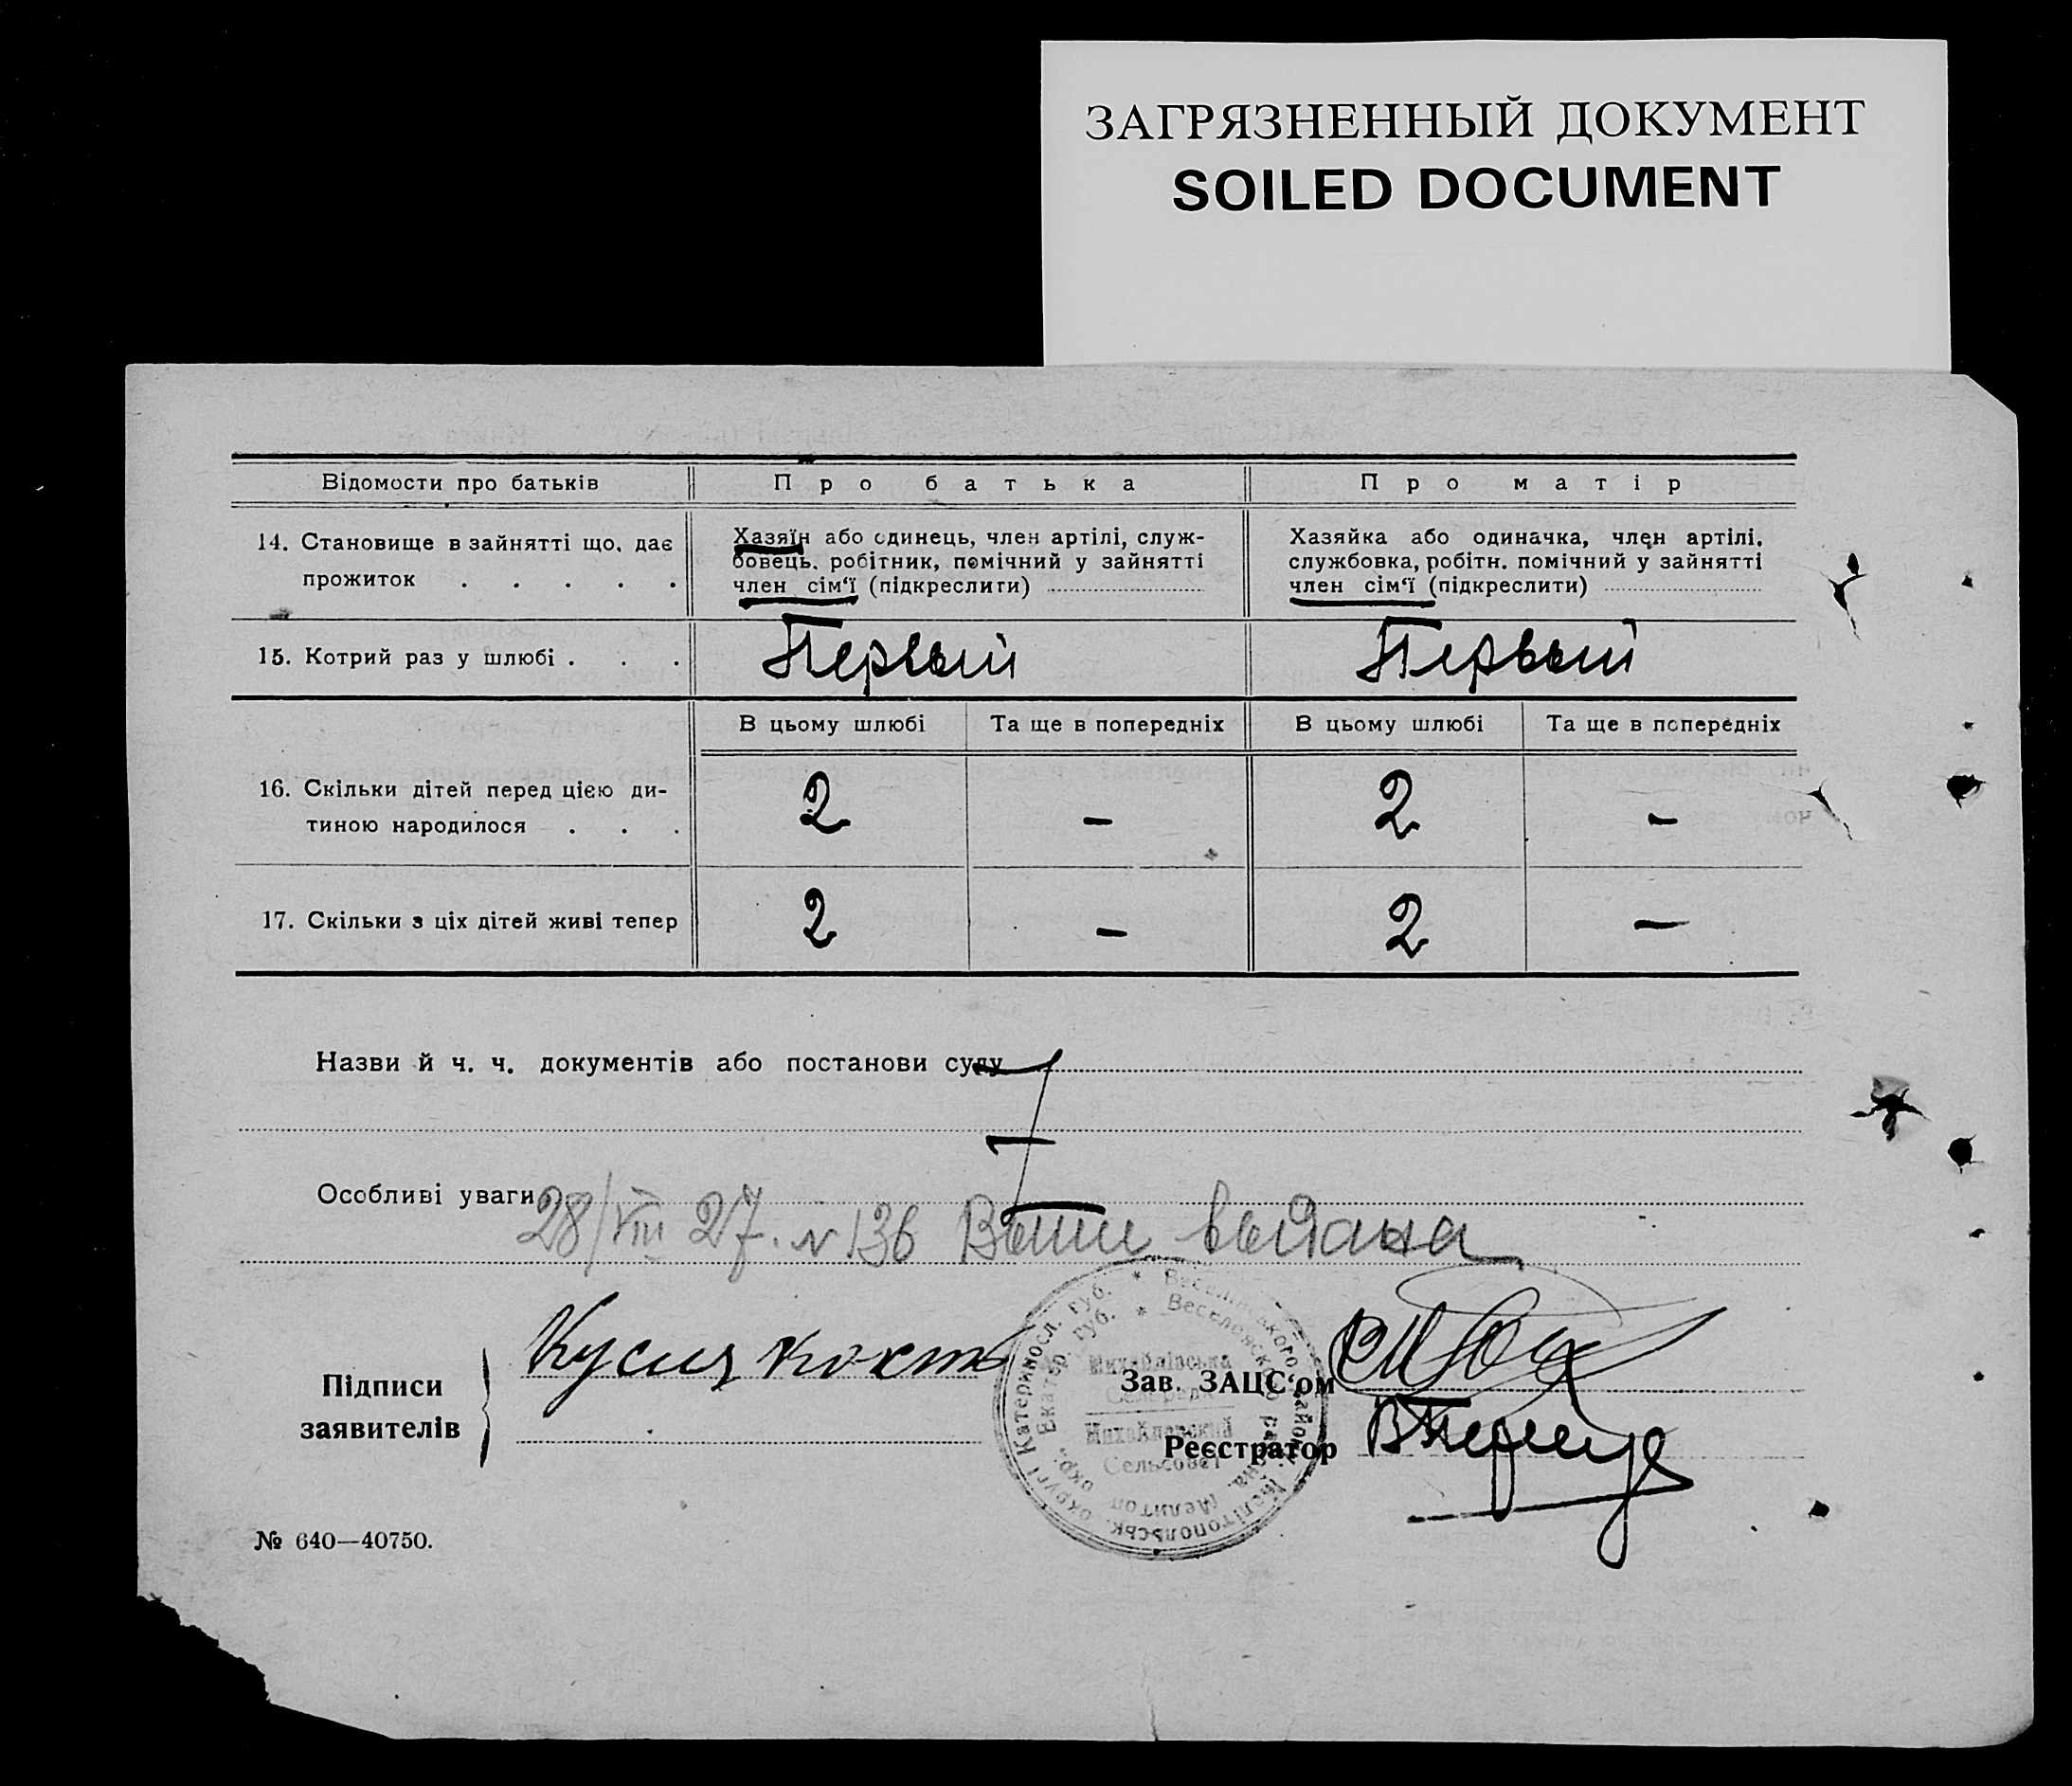 ЗАГРЯЗНЕННЫЙ ДОКУМЕНТ
SOILED DOCUMENT
Відомости про батьків
Про батька
Про матір
14. Становище в зайнятті що, дає
прожиток . . . . .
Хазяїн або одинець, член артілі, служ-
бовець, робітник, помічний у зайнятті
член сім'ї (підкреслити)
Хазяйка або одиначка, член артілі,
службовка, робітн. помічний у зайнятті
член сім'ї (підкреслити)
15. Котрий раз у шлюбі . . .
Первый
Первый
В цьому шлюбі
Та ще в попередніх
В цьому шлюбі
Та ще в попередніх
16. Скільки дітей перед цією ди-
тиною народилося . . .
2
–
2
–
17. Скільки з ціх дітей живі тепер
2
–
2
–
Назви й ч. ч. документів або постанови суду
Особливі уваги
28/VIII 27. N 136 выдана
Підписи
заявителів
Зав. ЗАЦС'ом
Реєстратор
Михайлівська
Сельрада
Михайловский
Сельсовет
№ 640—40750.